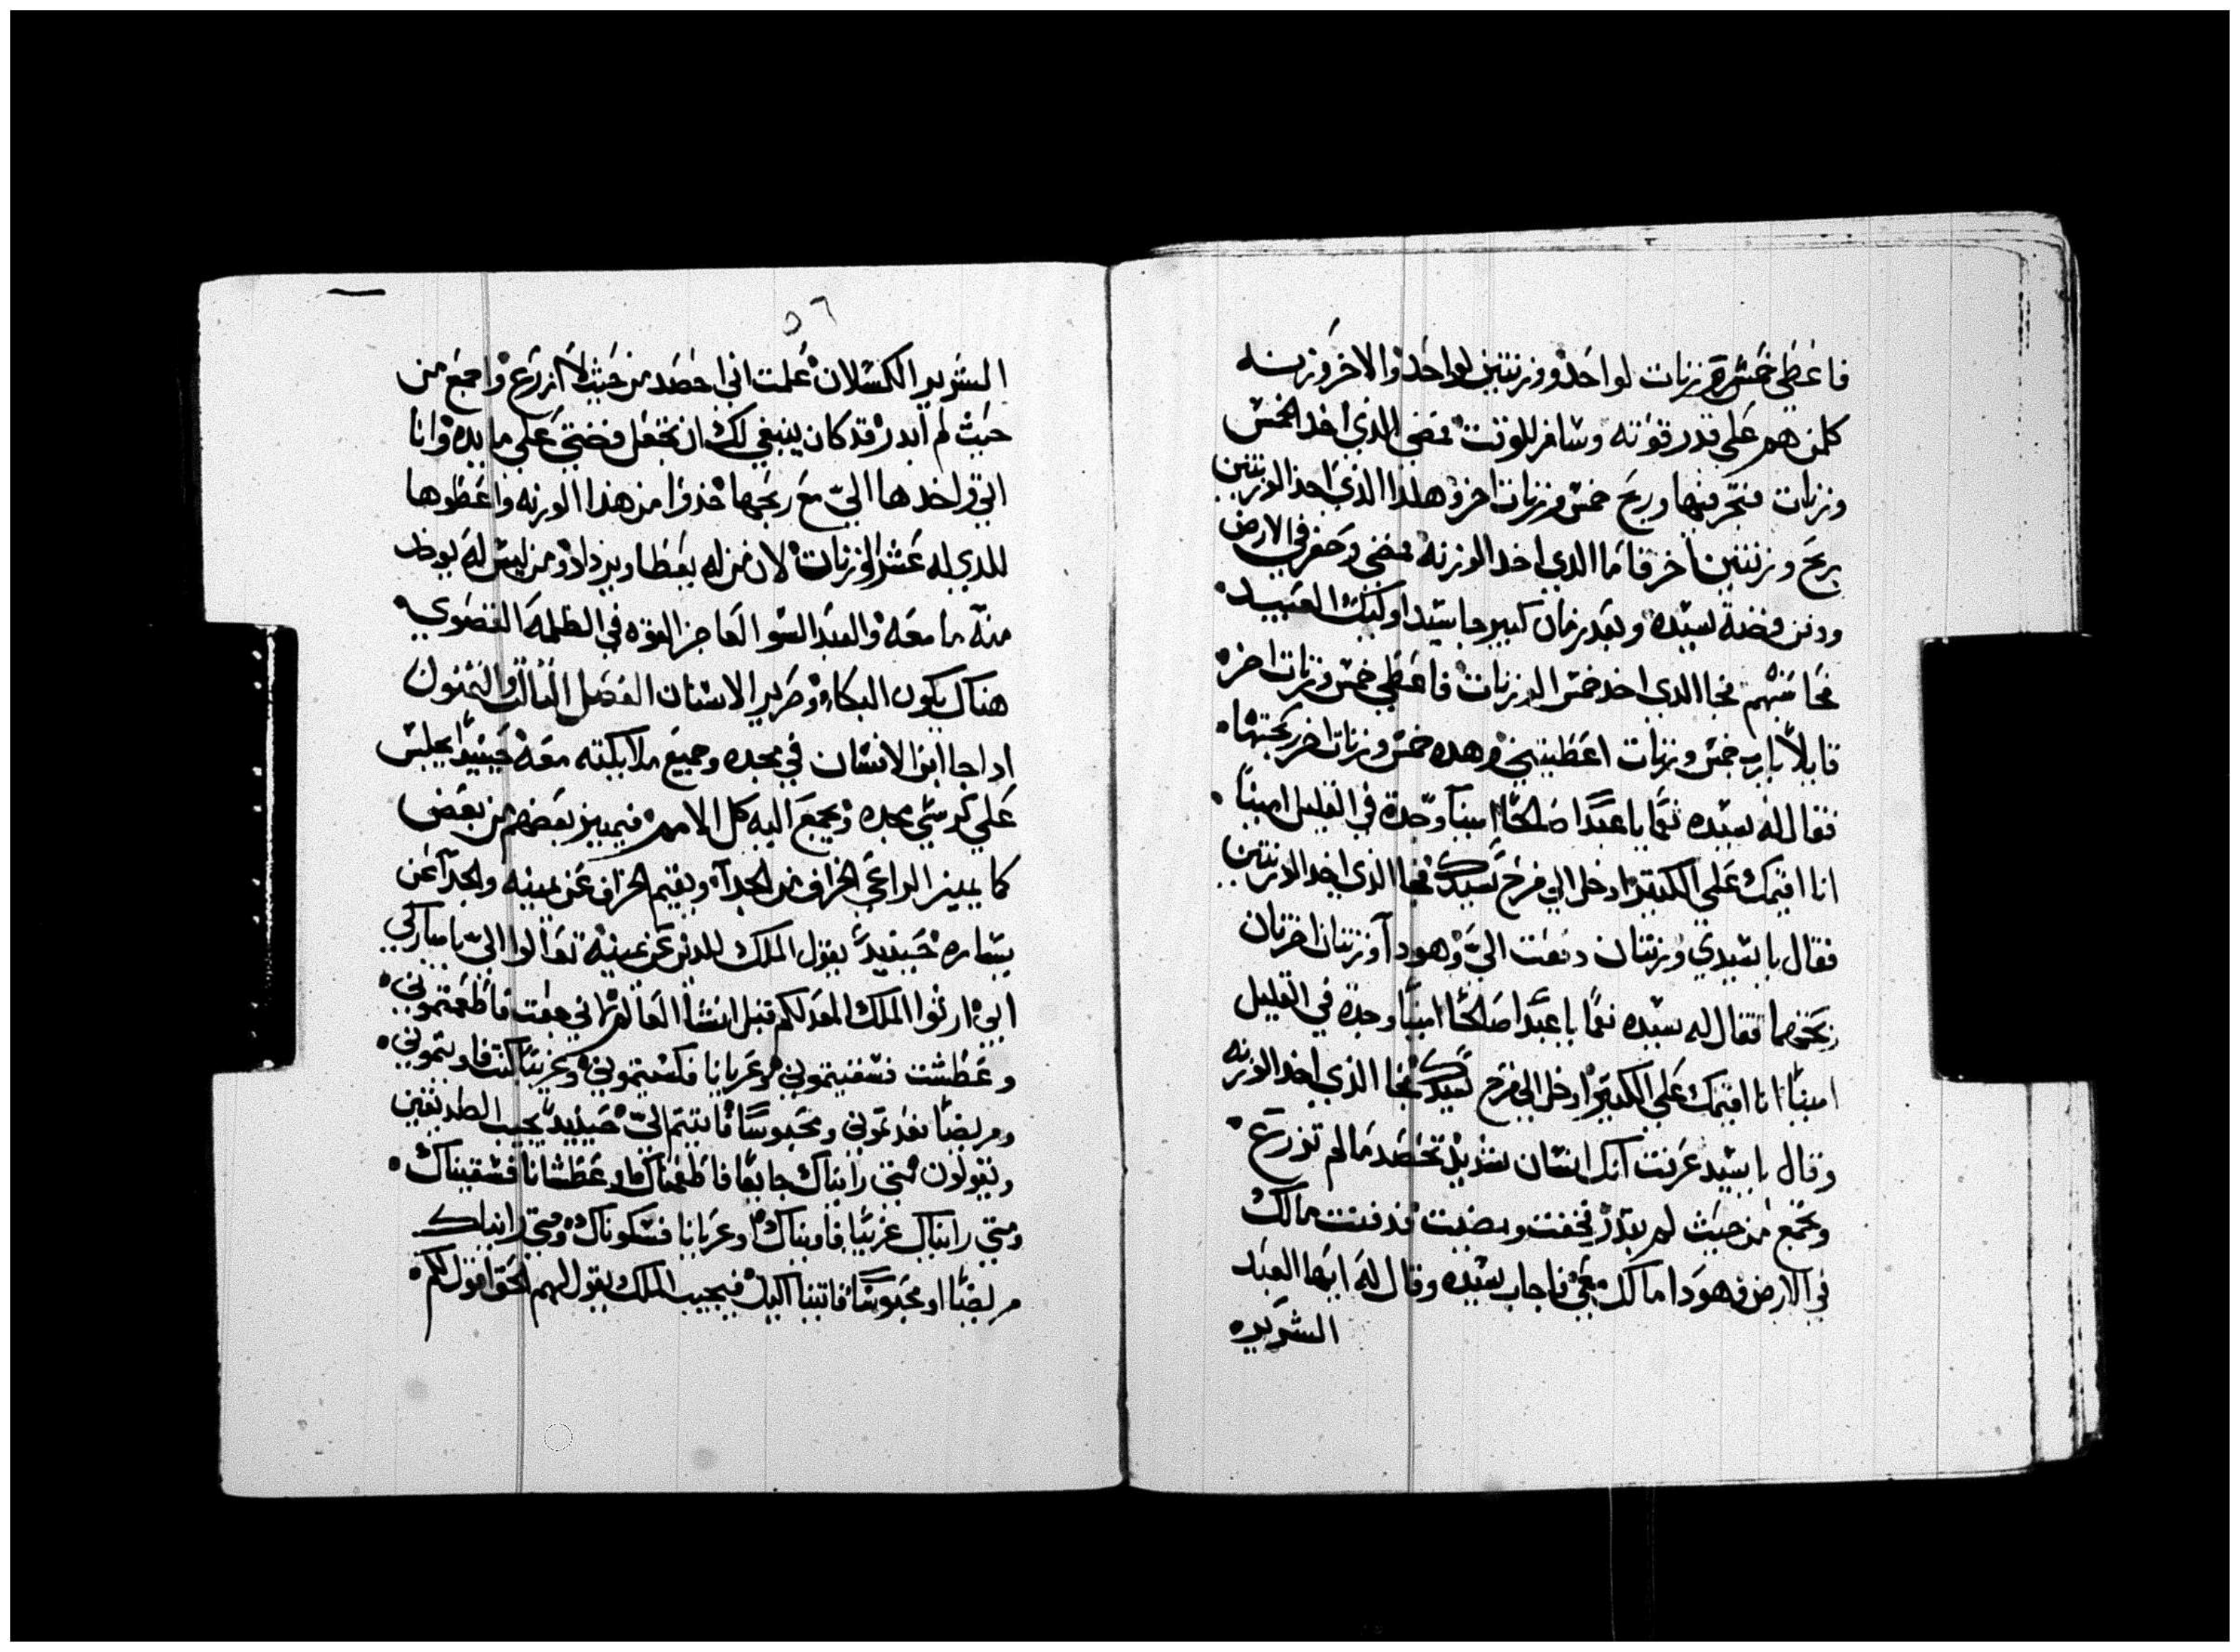 فاعطي خمسة وزنات لواحد ووزنتين لواحد والاخر وزنه
كلمن هم علي قدر قوته وسافر للوقت فمضي الذي اخد الخمس
وزنات فتجر فيها وربح خمس وزنات اخر وهكدا الذي اخد الوزنتين
ربح وزنتين اخر فاما الدي اخد الوزنه فمضي وحفر في الارض
ودفن فضة سيده وبعد زمان كبير جا سيد اوليك العبيد
فحاسبهم فجا الدي اخد خمس الوزنات فاعطي خمس وزنات اخر
قايلا يارب خمس وزنات اعطيتني وهده خمس وزنات اخر ربحتها
فقال له سيده نعما يا عبدا صالحا امينا وجدة في القليل امينا
انا اقيمك علي الكتير ادخل الي فرح سيدك فجا الذي اخد الوزنتين
فقال يا سيدي وزنتان دفعت الي وهودا وزنتان اخرتان
ربحتهما فقال له سيده نعما يا عبدا صالحا امينا وجدة في القليل
امينا انا اقيمك علي الكتير ادخل الي فرح سيدك فجا الذي اخد الوزنه
وقال يا سيد عرفت انك انسان شديد تحصد مالم تزرع
وتجمع من حيث لم تبدر فخفت ومضيت فدفنت مالك
في الارض فهودا مالك معي فاجاب سيده وقال له ايها العبد
الشرير
٥٦
الشرير الكسلان علمت اني احصد من حيث لا ازرع واجمع من
حيث لم ابدر قد كان ينبغي لك ان تجعل فضتي علي مايده وانا
اتي واخدها الي مع ربحها خدوا من هذا الوزنه واعطوها
للدي له عشر الوزنات لان من له يعطا ويزداد ومن ليس له يوخد
منه ما معه والعبد السو العاجز القوه في الظلمه القصوي
هناك يكون البكاء وصرير الاسنان الفصل التالت والتمنون
ادا جا ابن الانسان في مجده وجميع ملايكته معه حينيدا يجلس
علي كرسي مجده ويجمع اليه كل الامم فيميز بعضهم من بعض
كما يميز الراعي الخراف من الجدآ ويقيم الخراف عن يمينه والجدآ عن
يساره حينيد يقول الملك للدين عن يمينه تعالوا الي يا مباركي
ابي ارثوا الملك المعد لكم قبل انشا العالم اني جعت فاطعمتموني
وعطشت فسقيتموني وعريانا فكسيتموني وغريبا كنت فاويتموني
ومريضا فعدتموني ومحبوسا فاتيتم الي حينيد يجيب الصديقين
ويقولون متي رايناك جايعا فاطعمناك او عطشانا فسقيناك
ومتي رايناك غريبا فاويناك او عريانا فسكوناك ومتي رايناك
مريضا او محبوسا فاتينا اليك فيجيب الملك يقول لهم الحق اقول لكم